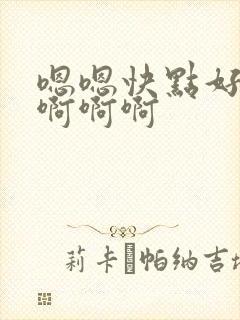 嗯嗯快點好
啊啊啊啊
莉卡·帕納吉